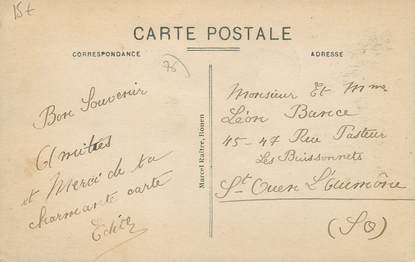 15€
CARTE POSTALE
CORRESPONDANCE
ADRESSE
76
Bon Souvenir
Amitiés
et Merci de ta
charmante carte
Marcel Raître, Rouen
Monsieur Et Mme
Léon Bance
45-47 Rue Pasteur
Les Buissonnets
St Ouen L'Aumône
(SO)